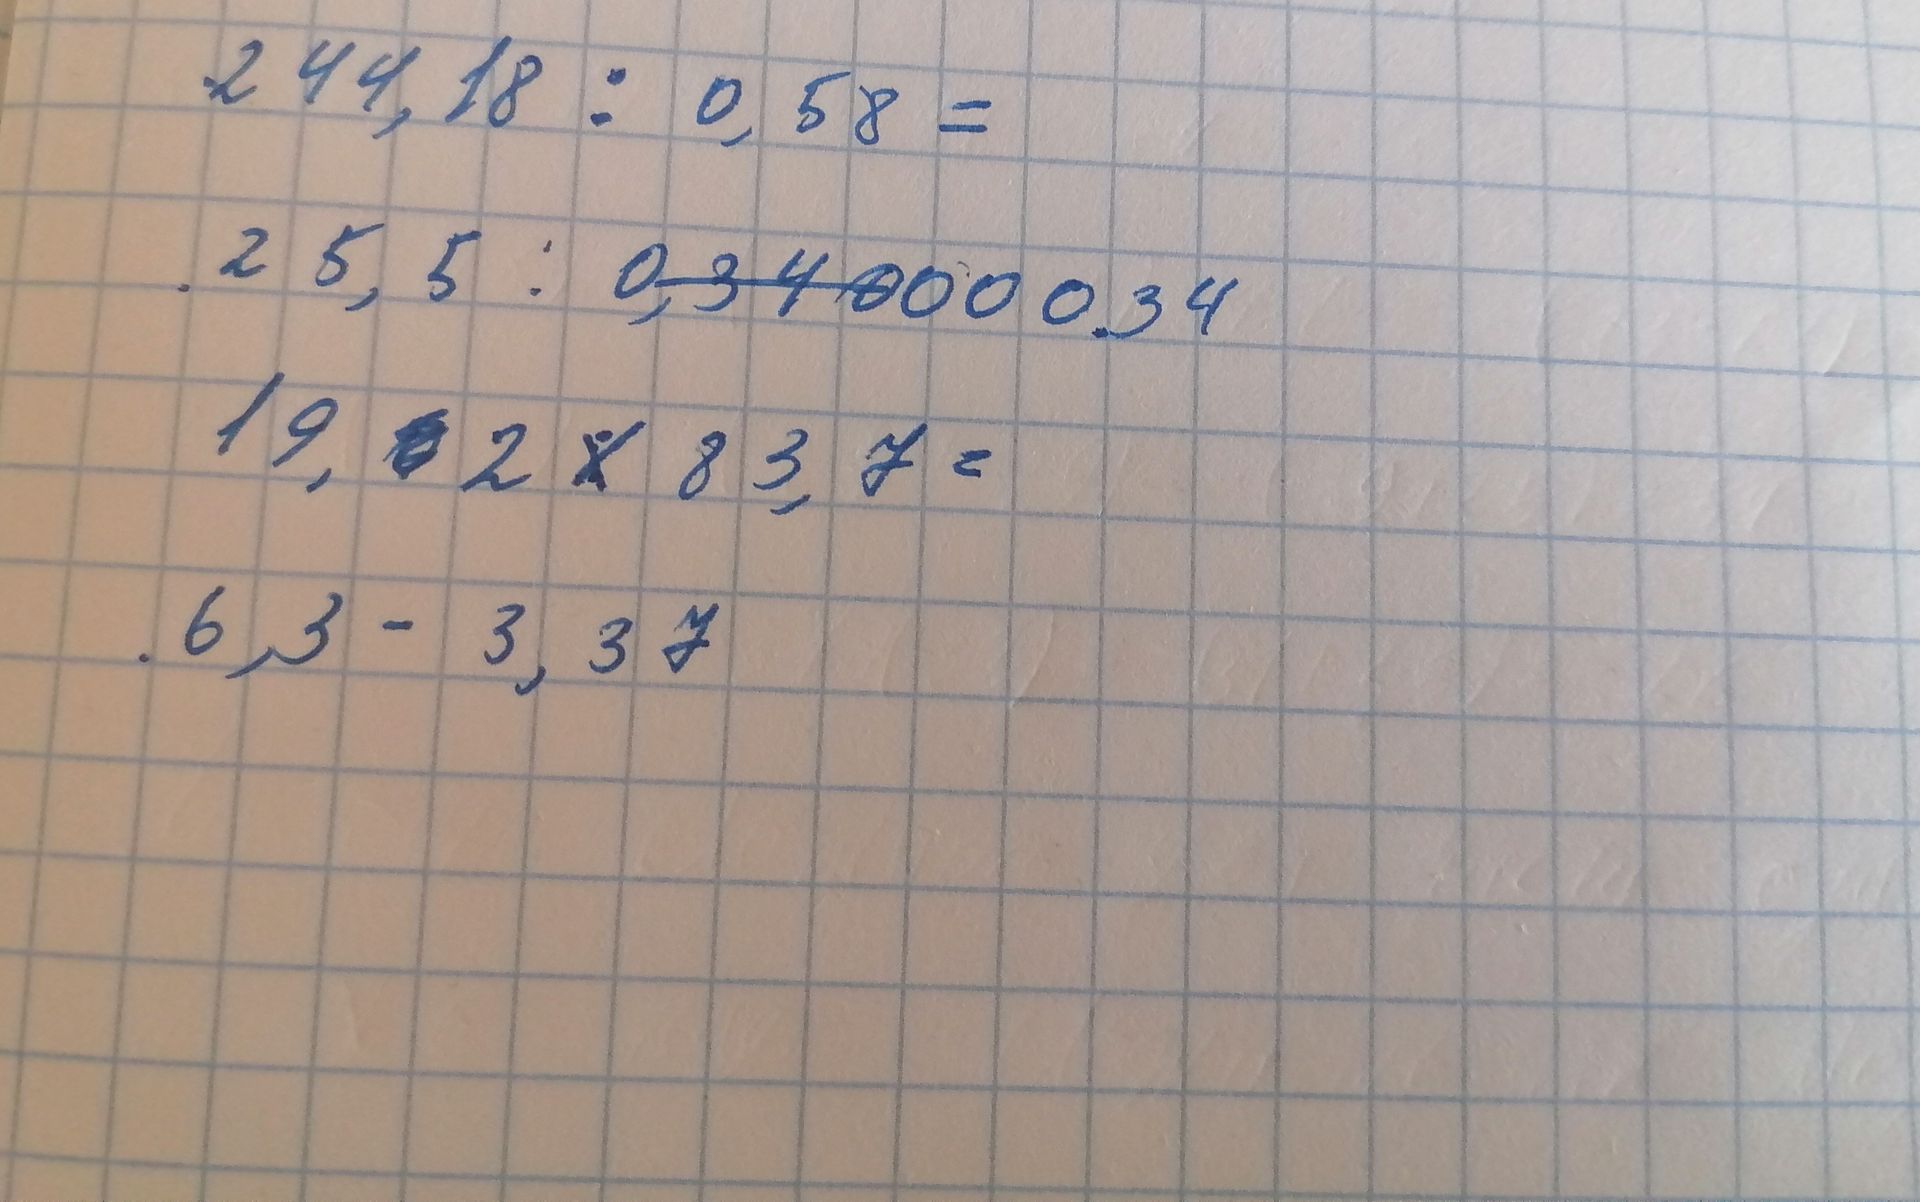 244,18 : 0,58 =
.25,5 : 0,340000.34
19,2 x 83,7 =
.6,3 - 3,37